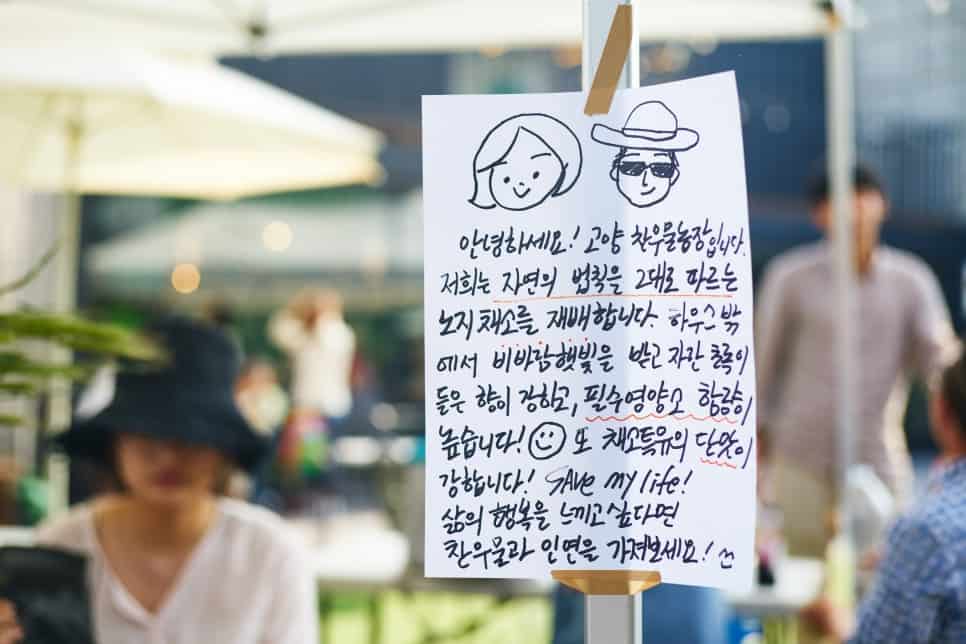 안녕하세요! 고양 찬우물농장입니다.
저희는 자연의 법칙을 그대로 따르는
노지채소를 재배합니다. 하우스 밖
에서 비바람햇빛을 받고 자란 초록이
들은 향이 강하고, 필수영양소 함량이
높습니다! 또 채소특유의 단맛이
강합니다! SAve my life!
삶의 행복을 느끼고싶다면
찬우물과 인연을 가져보세요!